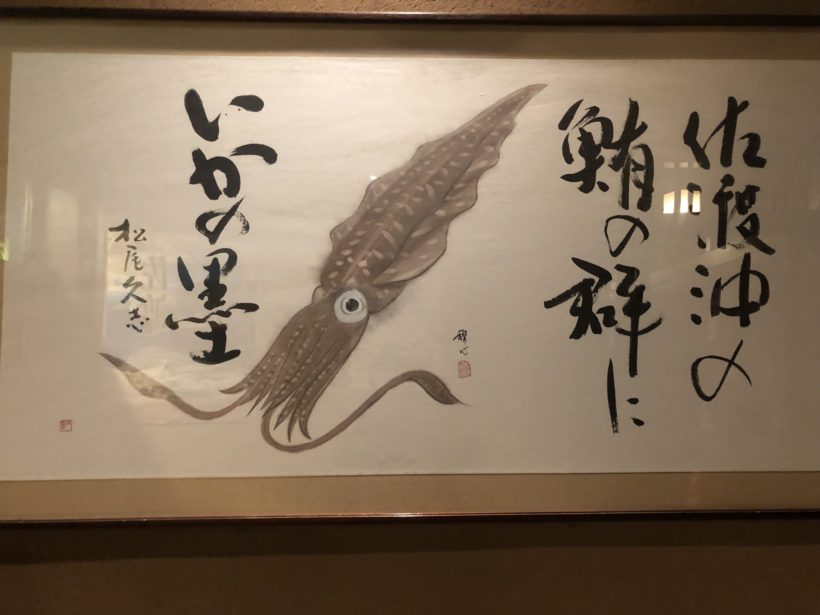 佐渡沖の
鮪の群に
いかの墨
松尾久志